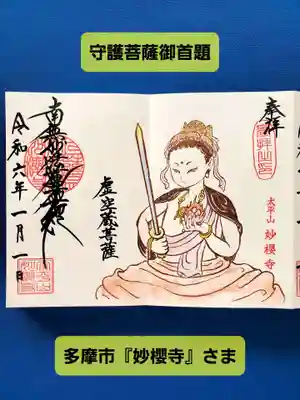 守護菩薩御首題
奉拝
太平山 妙櫻寺
虚空蔵菩薩
南無妙法蓮華経
令和六年一月一日
多摩市『妙櫻寺』さま